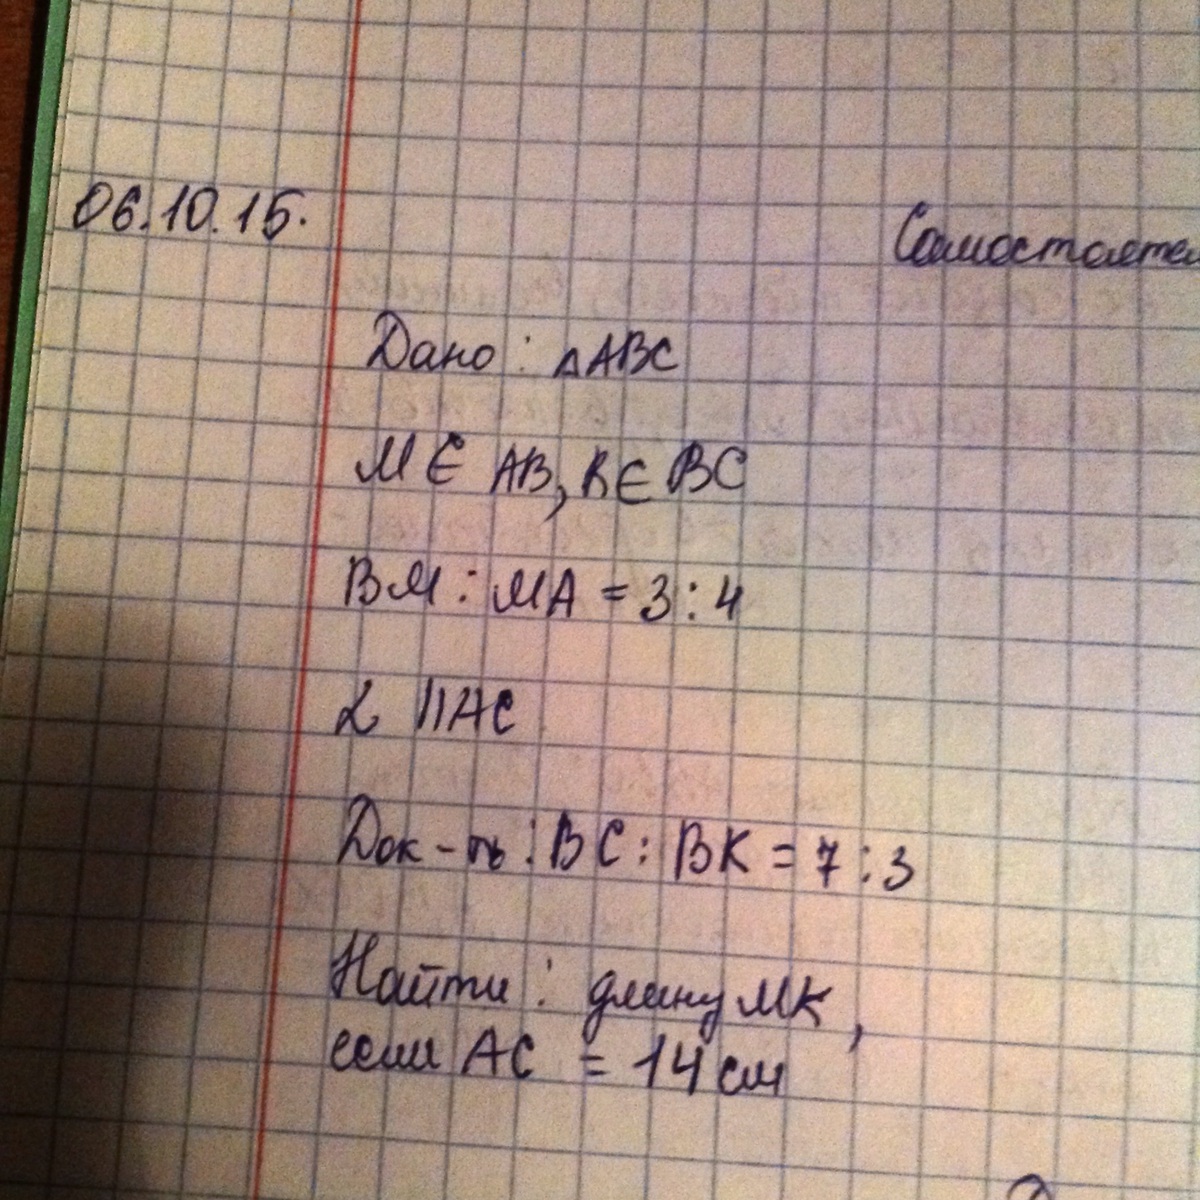 06.10.15.
Дано: △ABC
M ∈ AB, K ∈ BC
BM : MA = 3 : 4
α || AC
Док-ть: BC : BK = 7 : 3
Найти: длину MK,
если AC = 14 см